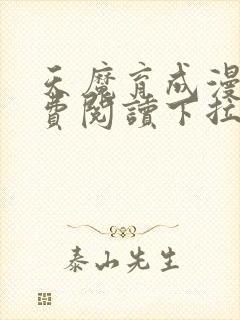 天魔育成漫
費閱讀下拉
泰山先生